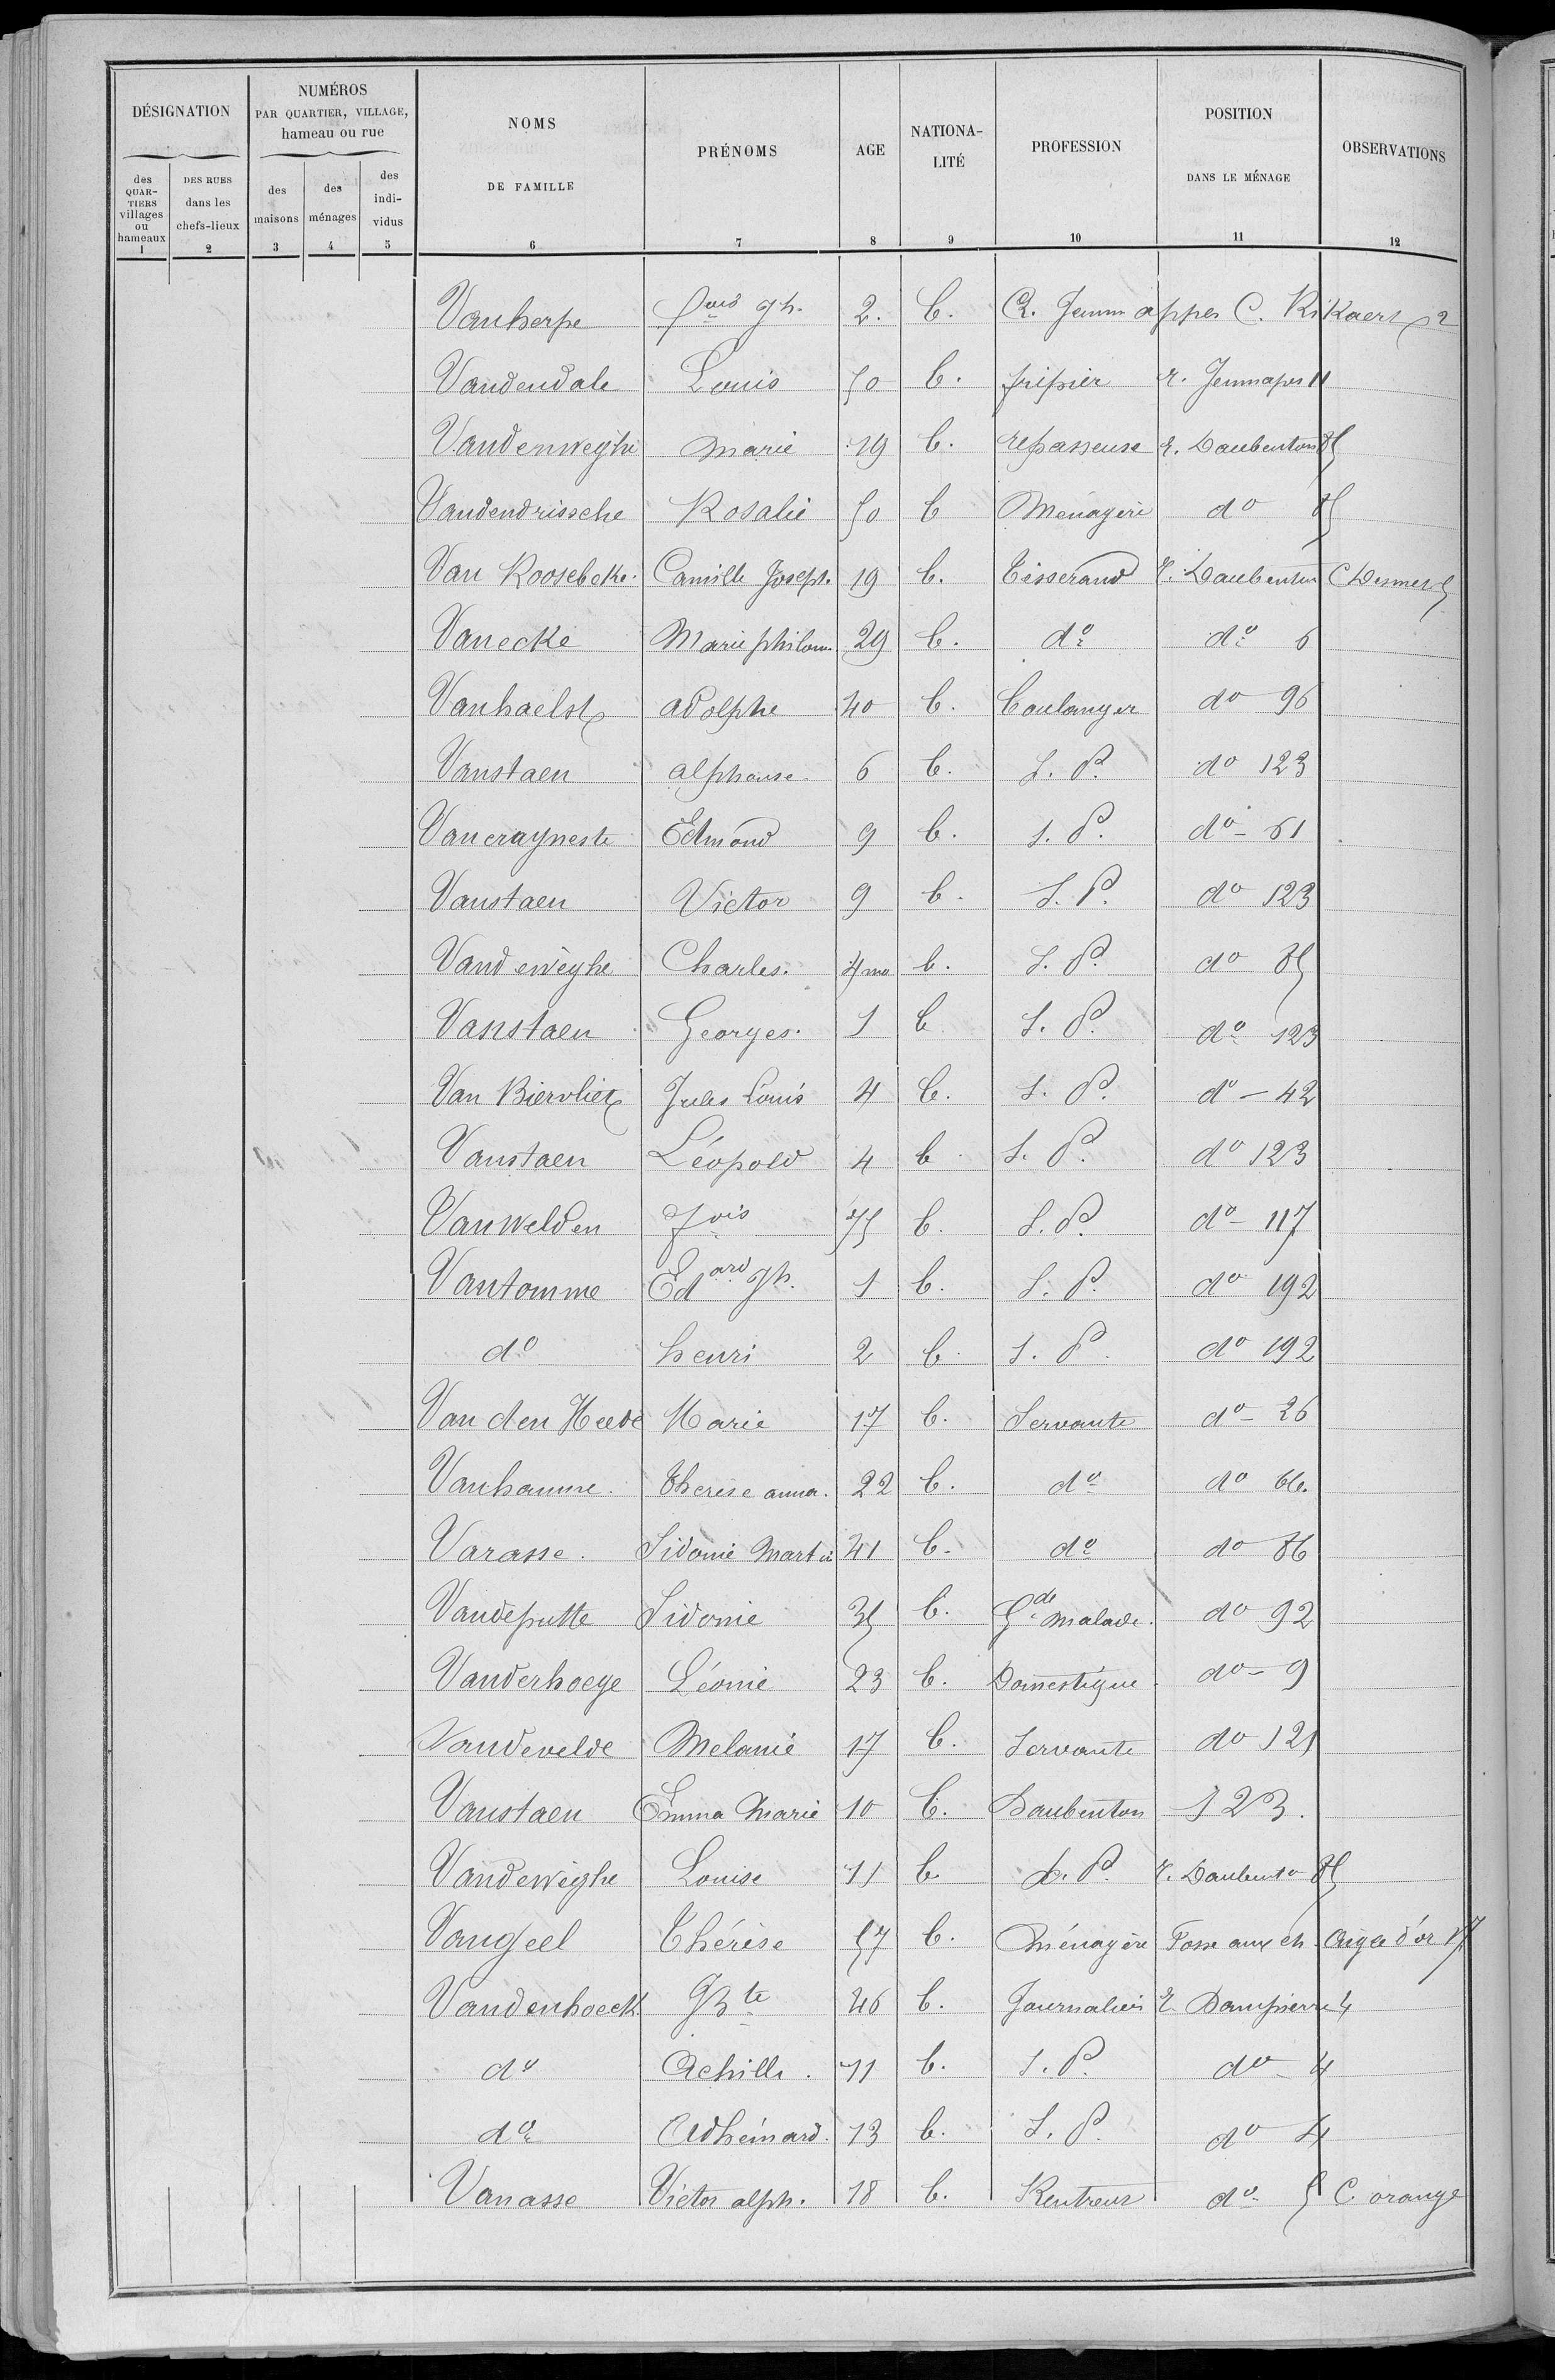 DÉSIGNATION
NUMÉROS
PAR QUARTIER, VILLAGE,
hameau ou rue
NOMS
DE FAMILLE
PRÉNOMS
AGE
NATIONA-
LITÉ
PROFESSION
POSITION
DANS LE MÉNAGE
OBSERVATIONS
des
QUAR-
TIERS
villages
ou
hameaux
DES RUES
dans les
chefs-lieux
des
maisons
des
ménages
des
indi-
vidus
1 2 3 4 5 6 7 8 9 10 11 12
Vanherpe fois Jh. 2. b. R. Jemmappes C. Rikaert 2
Vandendale Louis 50 b. fripier r. Jemmapes 11
Vandenweghe Marie 19 b. repasseuse r. Daubenton 85
Vandendrissche Rosalie 50 b Ménagère do 85
Van Roosebeke. Camille Joseph. 19 b. Tisserand r. Daubenton C Desmet 5
Vanecke Marie philom. 29 b. do do 6
Vanhaelst adolphe 40 b. boulanger do 96
Vanstaen alphonse 6 b. S. P. do 123
Vancrayneste Edmond 9 b. S. P. do - 61
Vanstaen Victor 9 b. S. P. do 123
Vandewèghe Charles. 4 mo b. S. P. do 85
Vanstaen Georges. 1 b S. P. do 123
Van Biervliet Jules Louis 4 b. S. P. do - 42
Vanstaen Léopold 4 b S. P. do 123
Vanwelden fois 75 b. S. P. do - 117
Vantomme Edard Jh. 1 b. S. P. do 192
do henri 2 b. S. P. do 192
Van den Heede Marie 17 b. Servante do - 26
Vanhamme. Thérèse anna. 22 b. do do 66.
Varasse. Sidonie Martin 41 b. do do 86
Vandeputte Sidonie 35 b. Gde Malade. do 92
Vanderhoege Léonie 23 b. Domestique do - 9
Vandevelde Melanie 17 b. Servante do 121
Vanstaen Emma Marie 10 b. Daubenton 123.
Vandewèghe Louise 11 b. S. P. r. Daubento 85
Vangeel Thérèse 57 b. Ménagère Fosse aux ch. Aigle d'or 17
Vandenhoeck JBte 46 b. Journalier r. Dampierre 4
do Achille. 11 b. S. P. do - 4
do Adhémard. 13 b. S. P. do 4
Vanasse Victor alph. 18 b. Rentreur do 5 C. orange